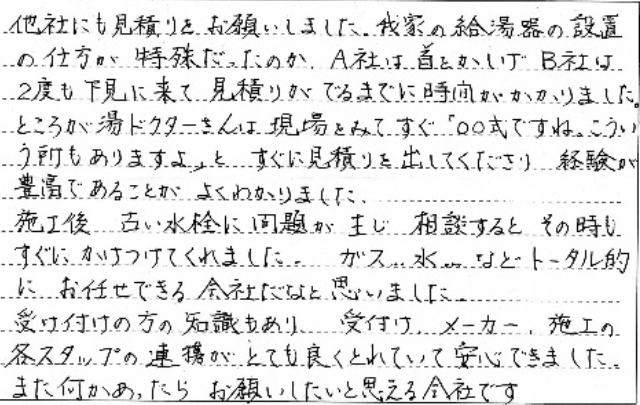 他社にも見積りをお願いしました。我家の給湯器の設置
の仕方が特殊だったのか、A社は首をかしげ B社は
2度も下見に来て 見積りがでるまでに時間がかかりました。
ところが湯ドクターさんは現場をみてすぐ「〇〇式ですね。こうい
う所もありますよ」と すぐに見積りを出してくださり 経験が
豊富であることが よくわかりました。
施工後 古い水栓に問題が生じ 相談すると その時も
すぐに かけつけてくれました。 ガス… 水… などトータル的
に お任せできる会社だなと思いました。
受け付けの方の知識もあり 受付け、メーカー、施工の
各スタップの連携が とても良くとれていて 安心できました。
また何かあったら お願いしたいと思える会社です